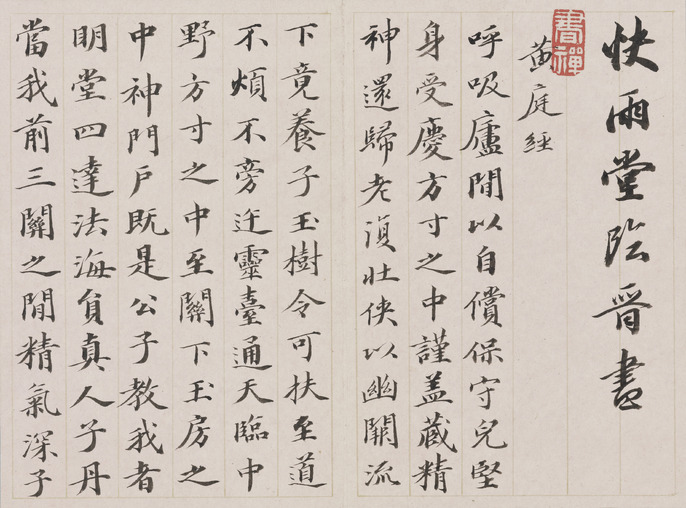 快雨堂臨晉書
書禪
黄庭經
呼吸廬間以自償保守皃堅
身受慶方寸之中謹盖藏精
神還歸老復壯俠以幽闕流
下竟養子玉樹令可扶至道
不煩不旁迕靈臺通天臨中
野方寸之中至關下玉房之
中神門戶既是公子教我者
明堂四達法海負真人子丹
當我前三關之間精氣深子